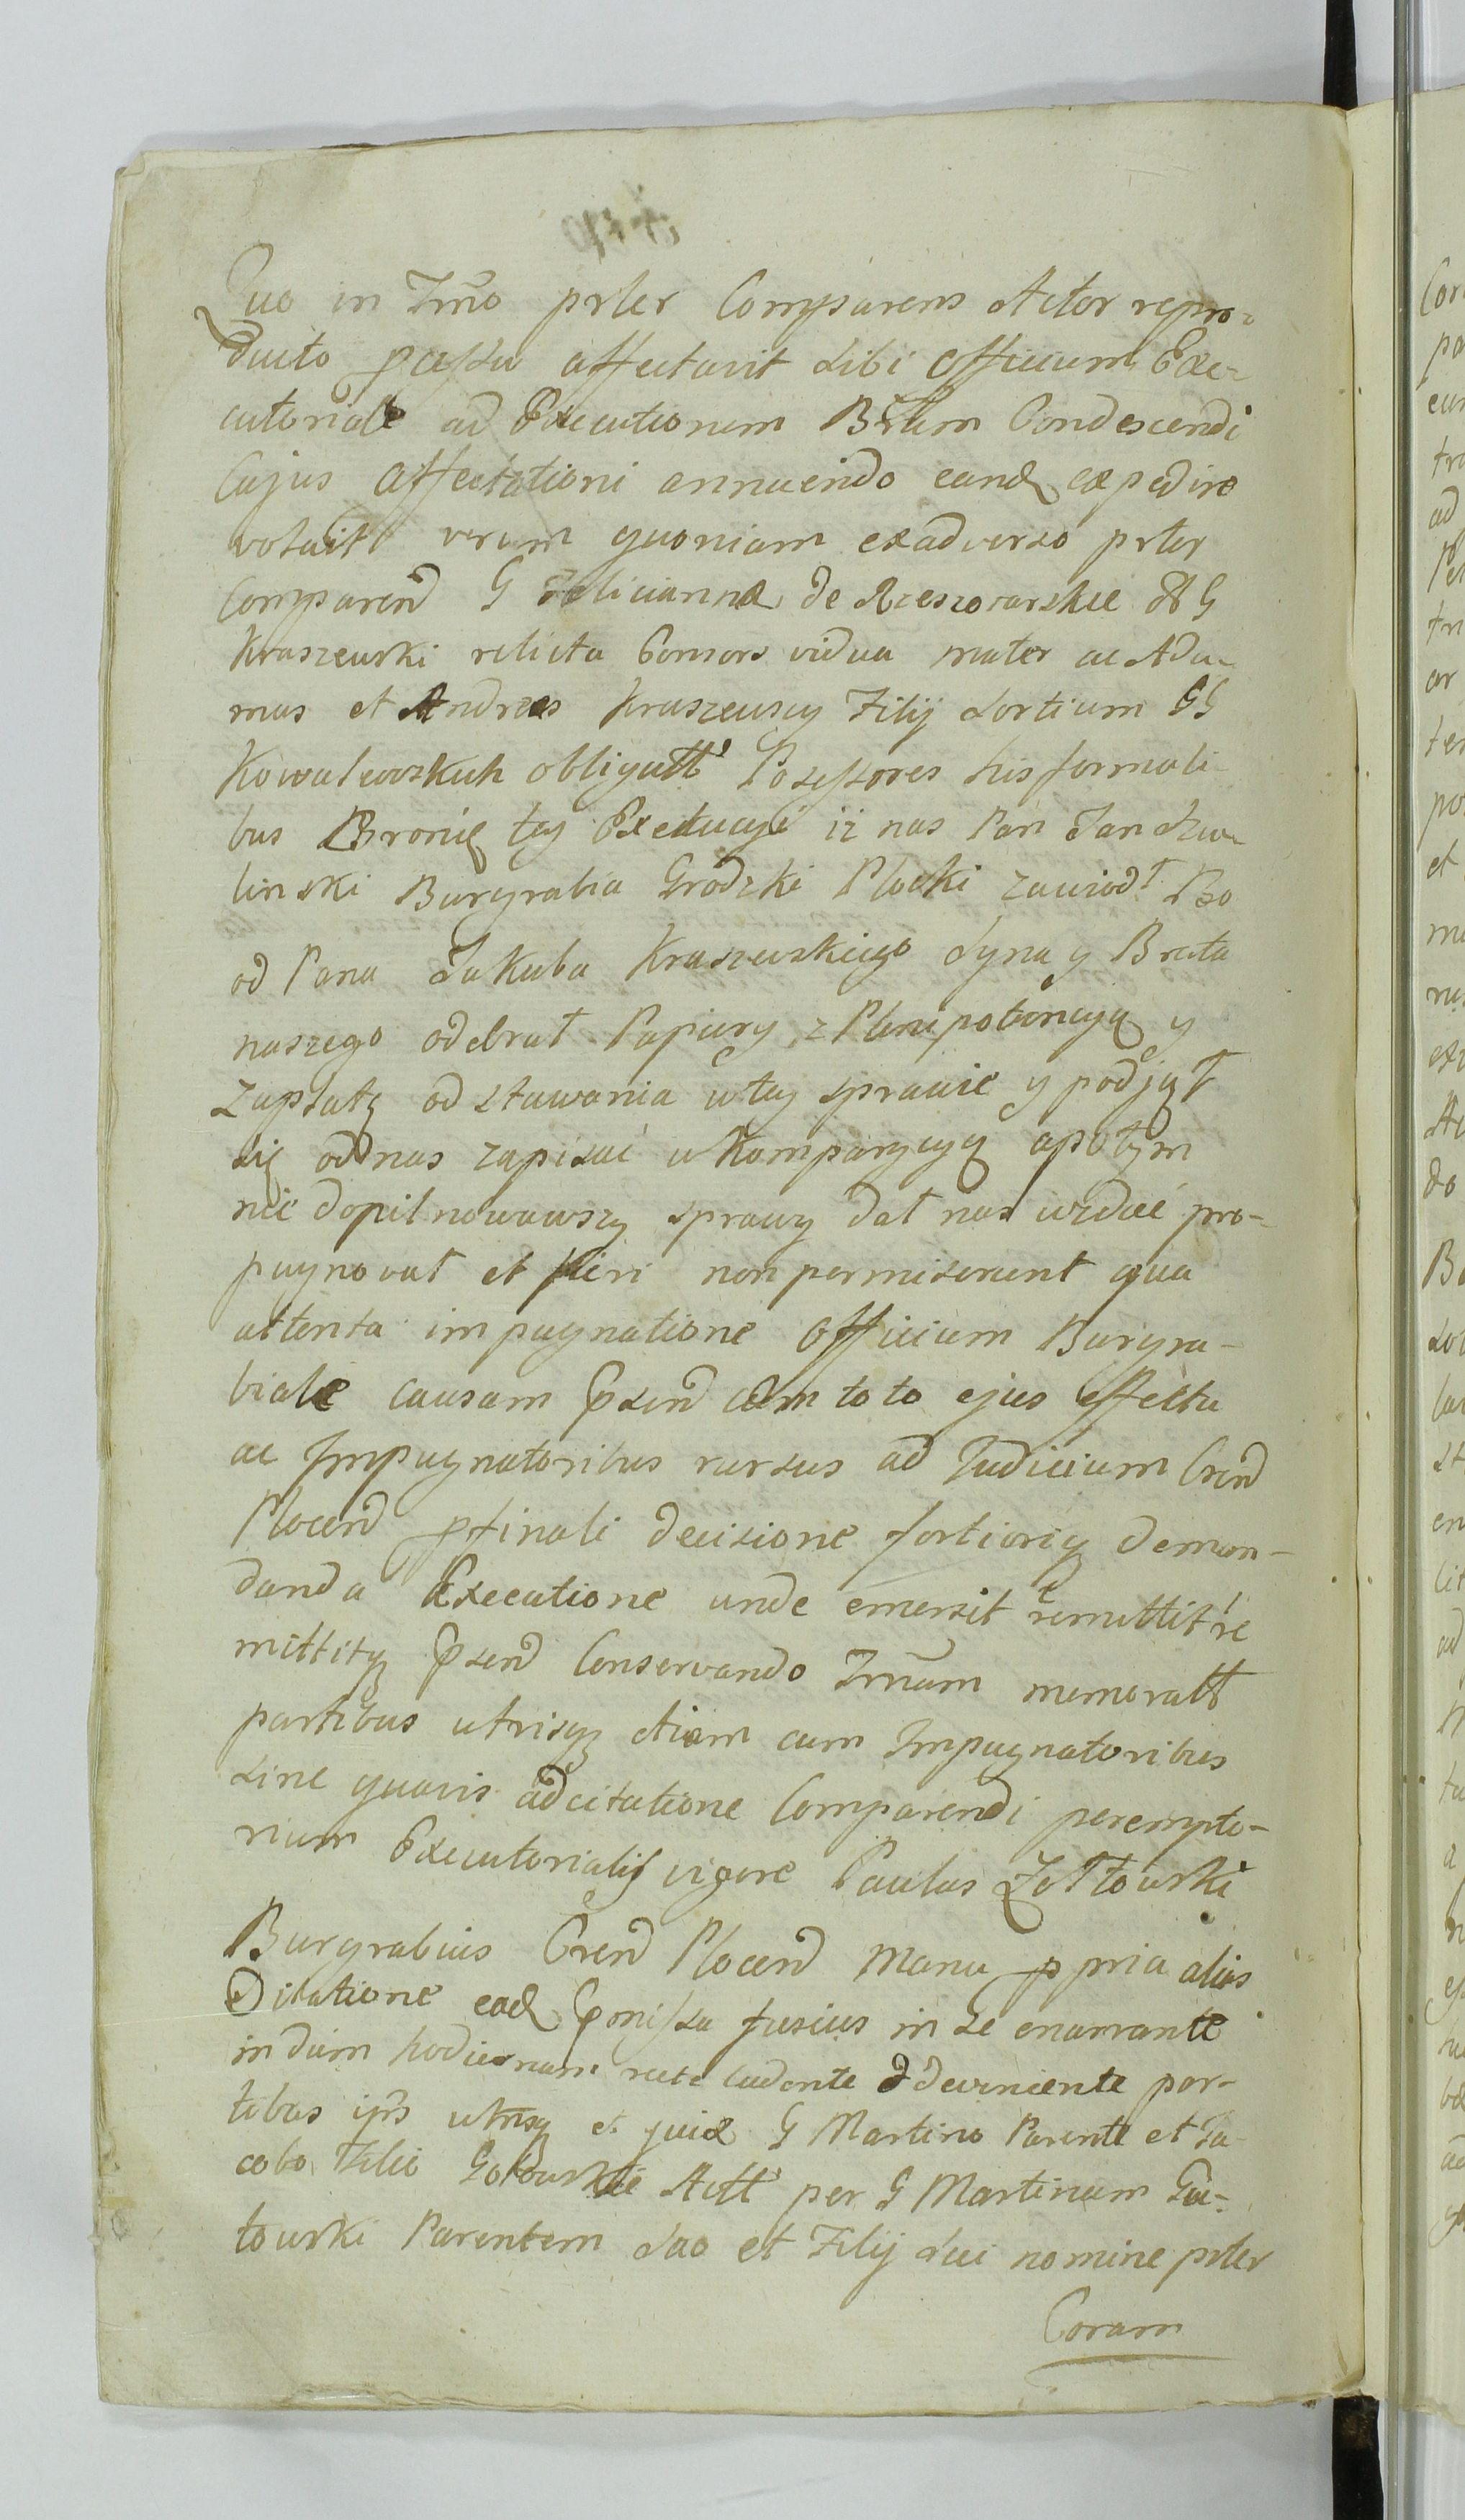 Quo in Tmo prter Comparens Actor repro-
ducto passu affectavit sibi officium Exe-
cutoriale ad Executionem Condescendi
Cujus affectationi annuendo eand expedire
voluit verum quoniam exadverso prter
Comparend G Feliciannae de Rzeszotarskie G
Kraszewski relicta Consors vidua mater ac Ada-
mus et Andreas Kraszewscy Filij sortium GG
Kowalewskich obligatt Possessores his formali-
bus Bronię tey Exekucyi iz nas Pan Jan
linski Burgrabia Grodzki Płocki zawiodł Bo
od Pana Jakuba Kraszewskiego Syna y Brata
naszego odebrał Papiery z Plenipotencyą y
Zapłatę od stawania w tey sprawie y podjął
się od nas zapisać w Komparycyą a potym
nie dopilnowawszy sprawy dał nas wzdać pro-
pugnovat et fieri non permiserunt qua
attenta impugnatione Officium Burgra-
biale causam psend cum toto ejus effectu
ac Impugnatoribus rursus ad Judicium Crend
Plocend pfinali decisione fortioriq deman-
danda Executione unde emersit remittit re
mittitq psend Conservando Tmum memoratt
partibus utrisq etiam cum Impugnatoribus
sine quavis adcitatione Comparendi perempto-
rium Executorialis vigore Paulus Zołtowski
Burgrabius Crend Plocend Manu ppria alias
Citatione ead pmissa fusius in se enarrante
in diem hodiernam recte cadente deveniente par-
tibus ipis utrisq et quid G Martino Parente et Ja-
cobo Filio Gołkowskie Actt per G Martinum Go-
łowski Parentem suo et Filij sui nomine prter
Coram